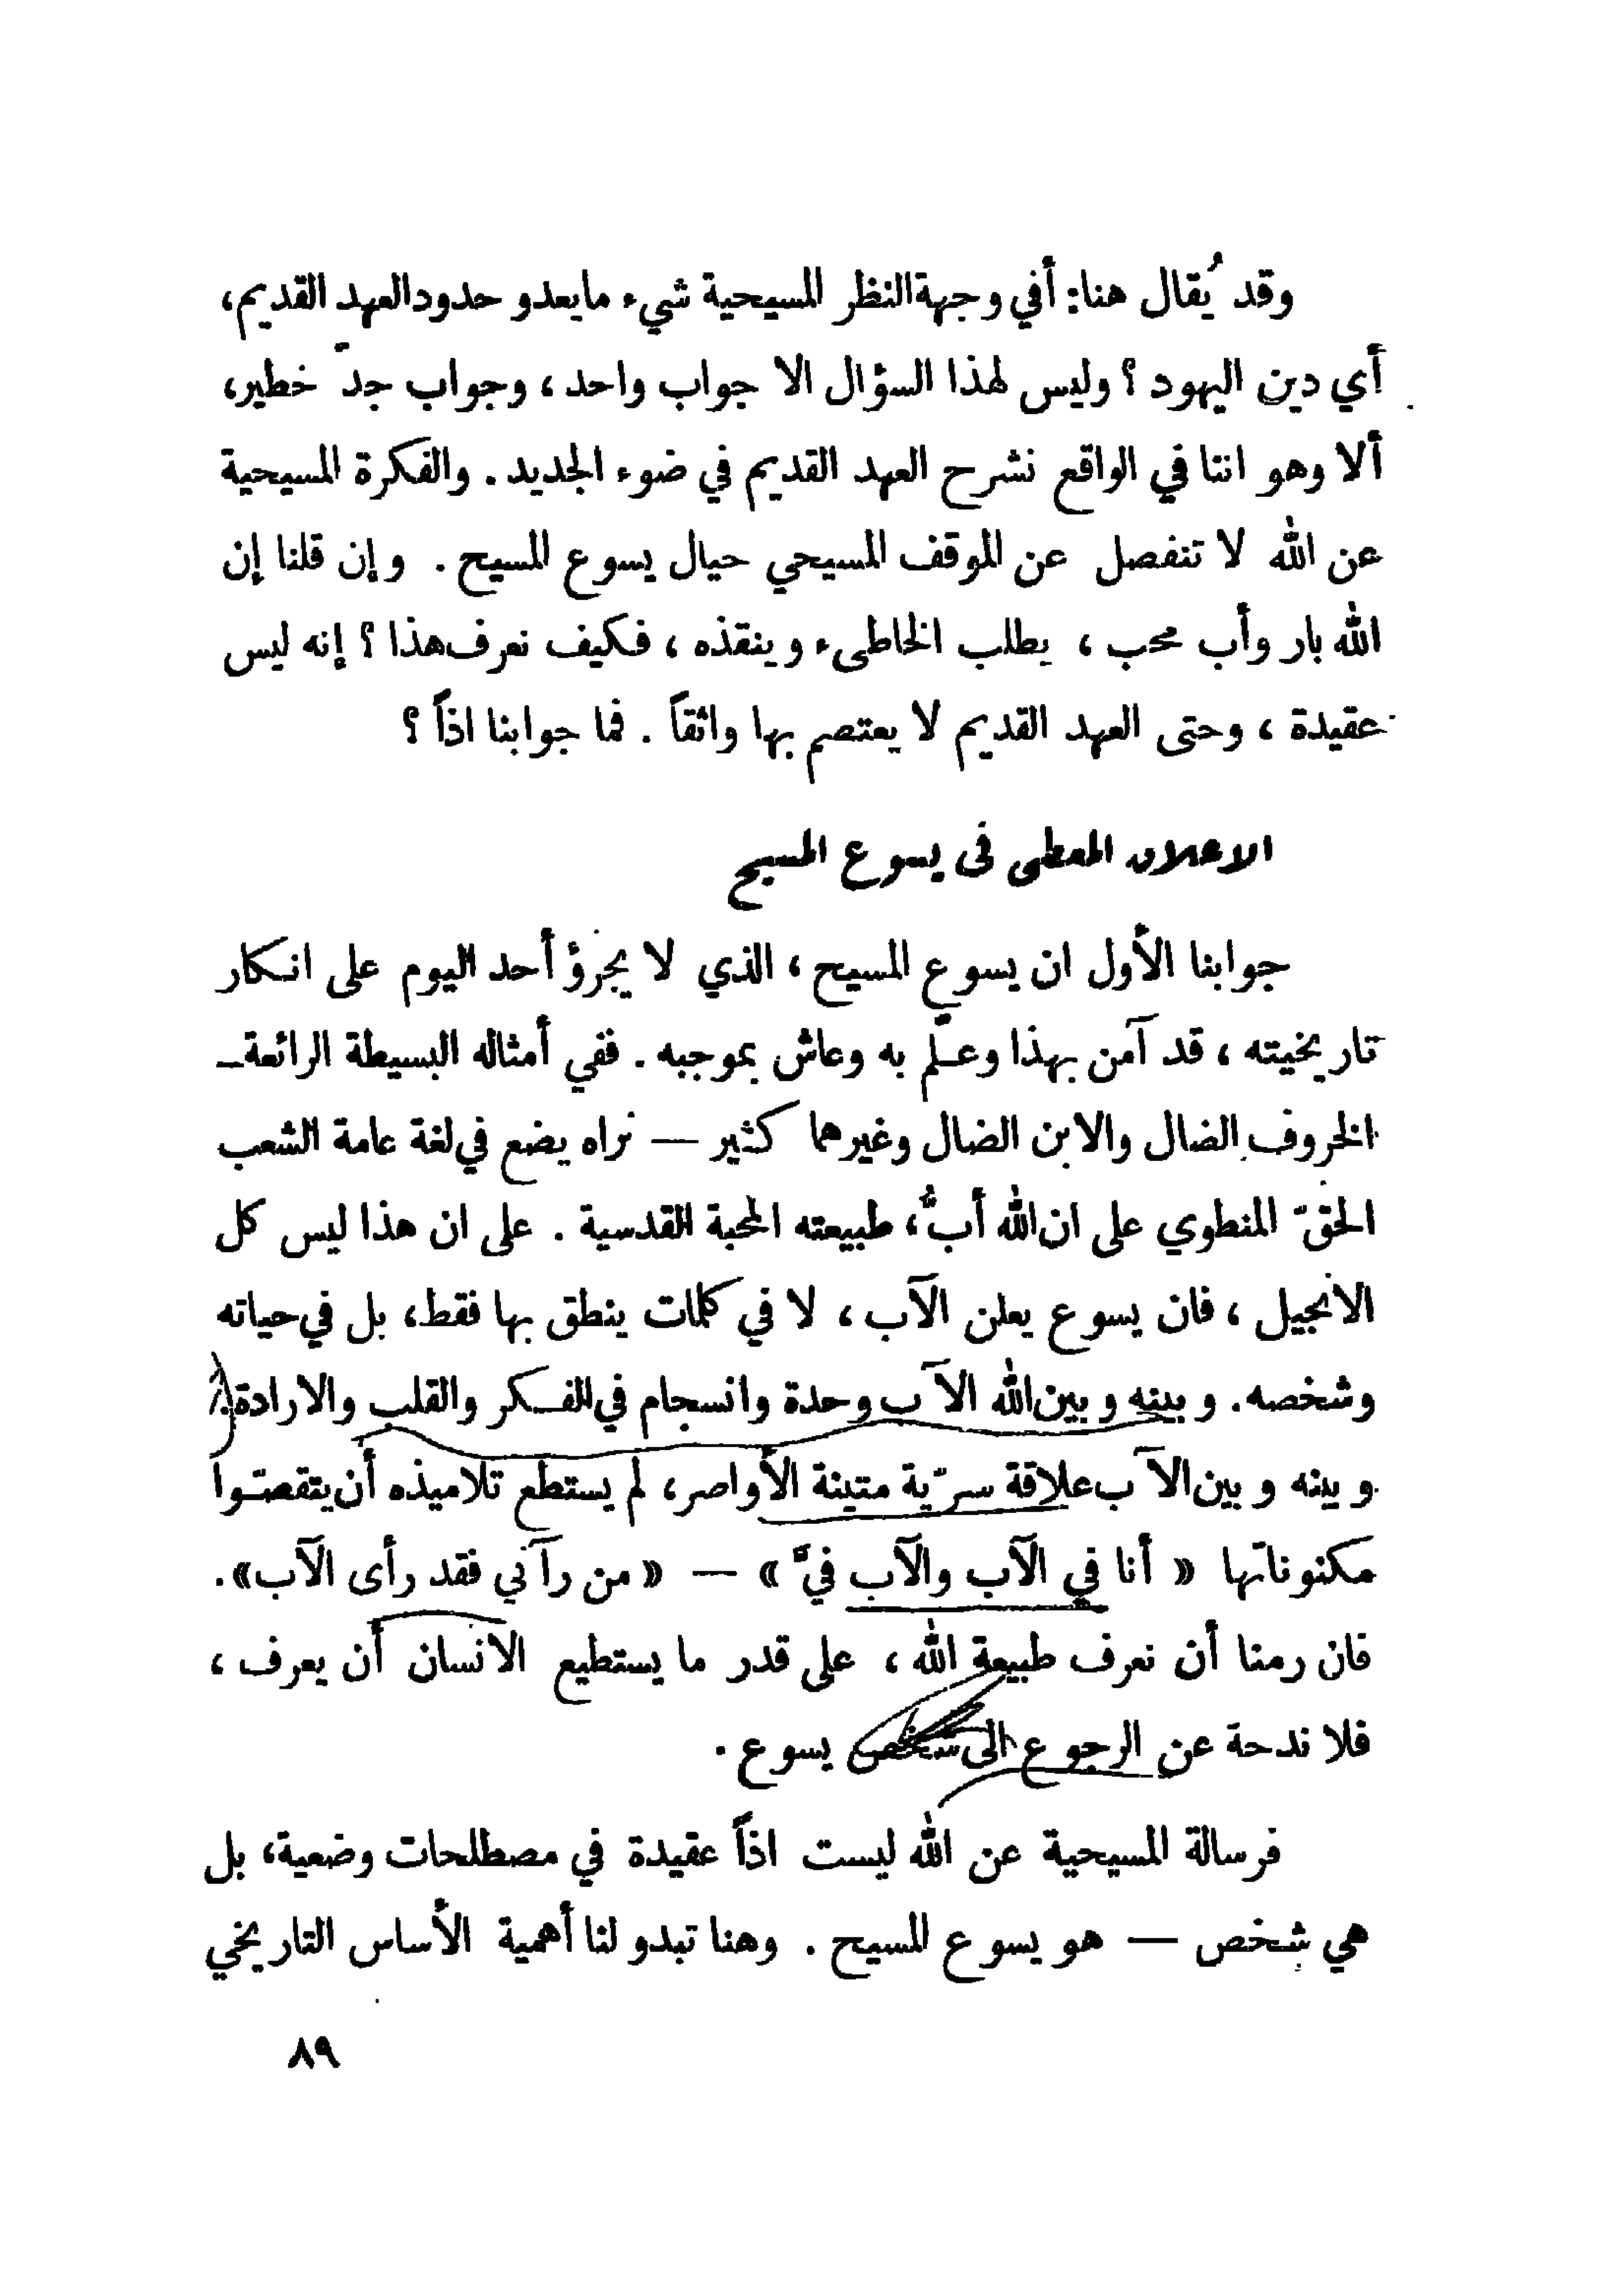 وقد يُقال هنا: أفي وجهة النظر المسيحية شيء ما يعدو حدود العهد القديم،
أي دين اليهود ؟ وليس لهذا السؤال الا جواب واحد ، وجواب جدّ خطير،
ألا وهو اننا في الواقع نشرح العهد القديم في ضوء الجديد . والفكرة المسيحية
عن الله لا تنفصل عن الموقف المسيحي حيال يسوع المسيح . وإن قلنا إن
الله بار وأب محب ، يطلب الخاطىء وينقذه ، فكيف نعرف هذا ؟ إنه ليس
عقيدة ، وحتى العهد القديم لا يعتصم بها واثقاً . فما جوابنا اذاً ؟
الاعلان المعطى في يسوع المسيح
جوابنا الأول ان يسوع المسيح ، الذي لا يجرؤ أحد اليوم على انكار
تاريخيته ، قد آمن بهذا وعلّم به وعاش بموجبه . ففي أمثاله البسيطة الرائعة —
الخروف الضال والابن الضال وغيرهما كثير — نراه يضع في لغة عامة الشعب
الحقّ المنطوي على ان الله أبٌ، طبيعته المحبة القدسية . على ان هذا ليس كل
الانجيل ، فان يسوع يعلن الآب ، لا في كلمات ينطق بها فقط، بل في حياته
وشخصه. وبينه وبين الله الآب وحدة وانسجام في الفكر والقلب والارادة.
وبينه وبين الآب علاقة سرّية متينة الأواصر، لم يستطع تلاميذه أن يتقصّوا
مكنوناتها « أنا في الآب والآب فيَّ » — « من رآني فقد رأى الآب».
فان رمنا أن نعرف طبيعة الله ، على قدر ما يستطيع الانسان أن يعرف ،
فلا ندحة عن الرجوع الى شخص يسوع .
فرسالة المسيحية عن الله ليست اذاً عقيدة في مصطلحات وضعية، بل
هي شخص — هو يسوع المسيح . وهنا تبدو لنا أهمية الأساس التاريخي
٨٩